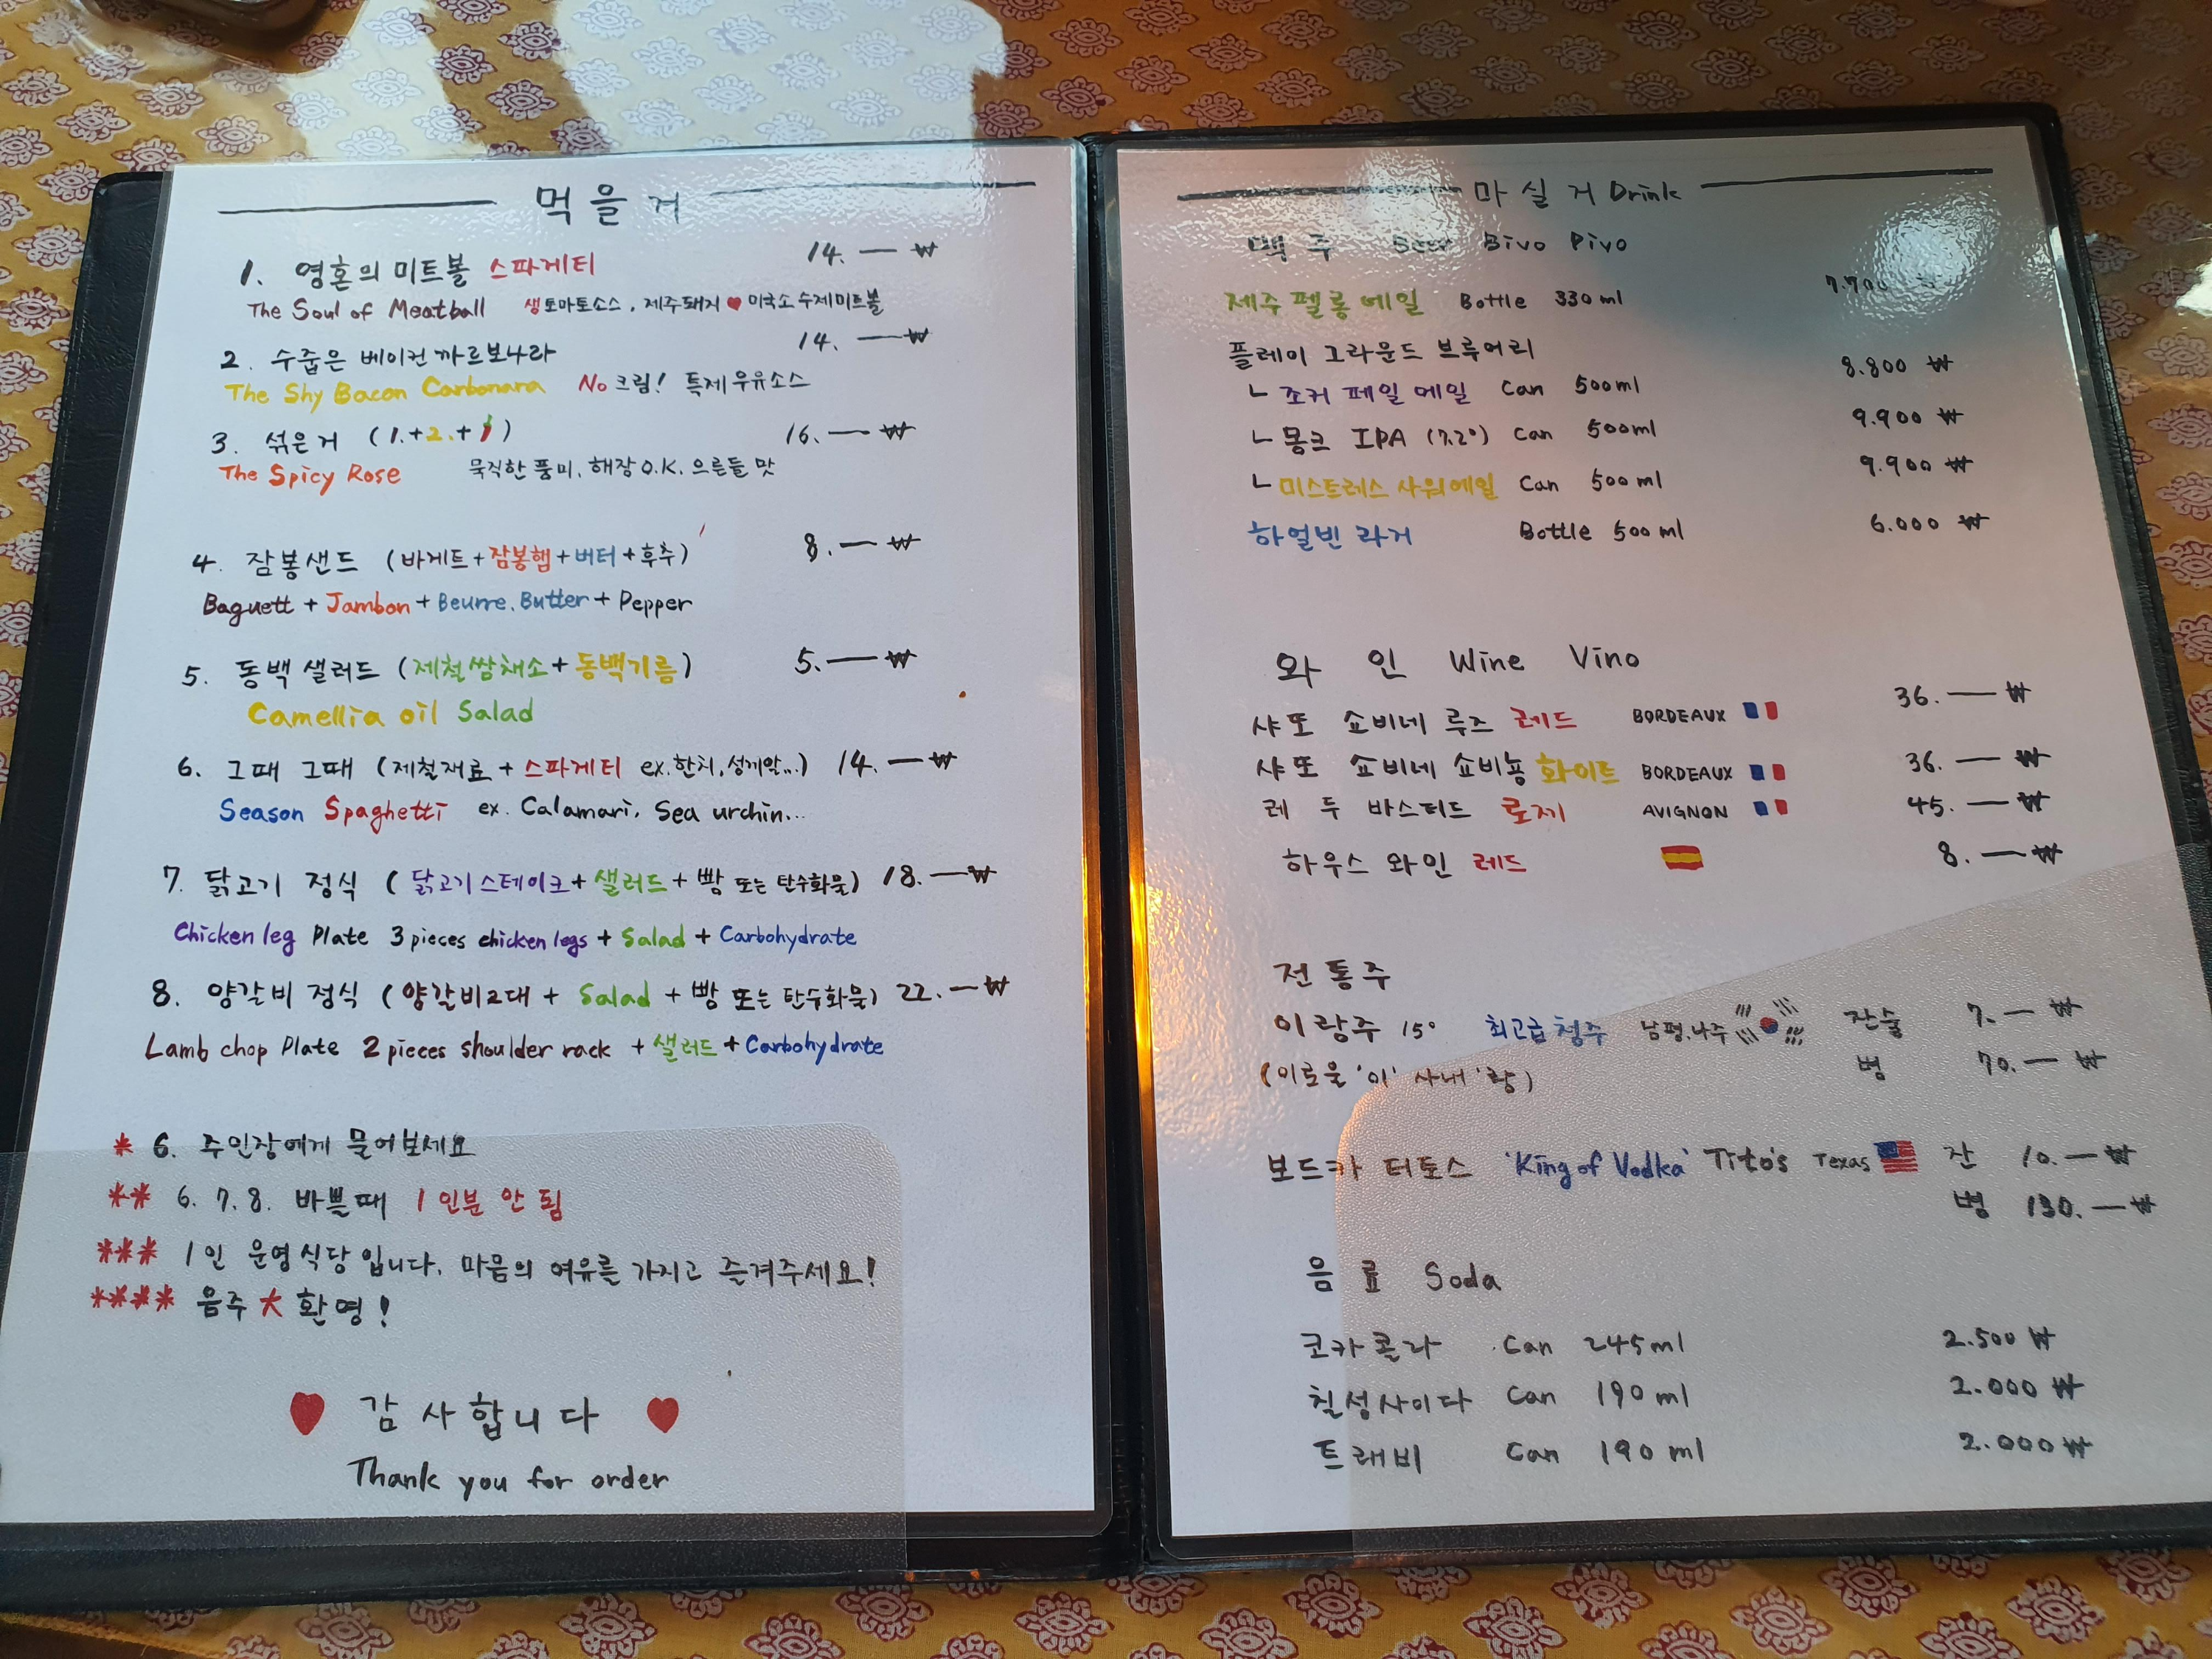 먹을거
1. 영혼의 미트볼 스파게티 14. — ₩
The Soul of Meatball 생토마토소스, 제주돼지 ♥ 미국소 수제미트볼
2. 수줍은 베이컨 까르보나라 14. — ₩
The Shy Bacon Carbonara No 크림! 특제 우유소스
3. 섞은거 (1.+2.+ ) 16. — ₩
The Spicy Rose 묵직한 풍미, 해장 O.K. 으른들 맛
4. 잠봉샌드 (바게트+잠봉햄+버터+후추) 8. — ₩
Baguett + Jambon + Beurre. Butter + Pepper
5. 동백 샐러드 (제철쌈채소+동백기름) 5. — ₩
Camellia oil Salad
6. 그때 그때 (제철재료 + 스파게티 ex.한치, 성게알...) 14. — ₩
Season Spaghetti ex. Calamari, Sea urchin...
7. 닭고기 정식 (닭고기스테이크+샐러드+빵 또는 탄수화물) 18. — ₩
Chicken leg Plate 3 pieces chicken legs + Salad + Carbohydrate
8. 양갈비 정식 (양갈비2대 + Salad + 빵 또는 탄수화물) 22. — ₩
Lamb chop Plate 2 pieces shoulder rack + 샐러드 + Carbohydrate
* 6. 주인장에게 물어보세요
** 6. 7. 8. 바쁠때 1인분 안 됨
*** 1인 운영식당입니다. 마음의 여유를 가지고 즐겨주세요!
**** 음주 大 환영!
♥ 감사합니다 ♥
Thank you for order
마실거 Drink
맥주 Beer Bivo Pivo
제주 펠롱 에일 Bottle 330ml 7.700 ₩
플레이 그라운드 브루어리
ㄴ 조커 페일 에일 Can 500ml 8.800 ₩
ㄴ 몽크 IPA (7.2°) Can 500ml 9.900 ₩
ㄴ 미스트레스 사워에일 Can 500ml 9.900 ₩
하얼빈 라거 Bottle 500ml 6.000 ₩
와인 Wine Vino
샤또 쇼비네 루즈 레드 BORDEAUX 36. — ₩
샤또 쇼비네 쇼비뇽 화이트 BORDEAUX 36. — ₩
레 두 바스티드 로제 AVIGNON 45. — ₩
하우스 와인 레드 8. — ₩
전통주
이랑주 15° 최고급 청주 남평, 나주 잔술 7. — ₩
(이로울 '이' 사내 '랑') 병 70. — ₩
보드카 티토스 'King of Vodka' Tito's Texas 잔 10. — ₩
병 130. — ₩
음료 Soda
코카콜라 Can 245ml 2.500 ₩
칠성사이다 Can 190ml 2.000 ₩
트레비 Can 190ml 2.000 ₩